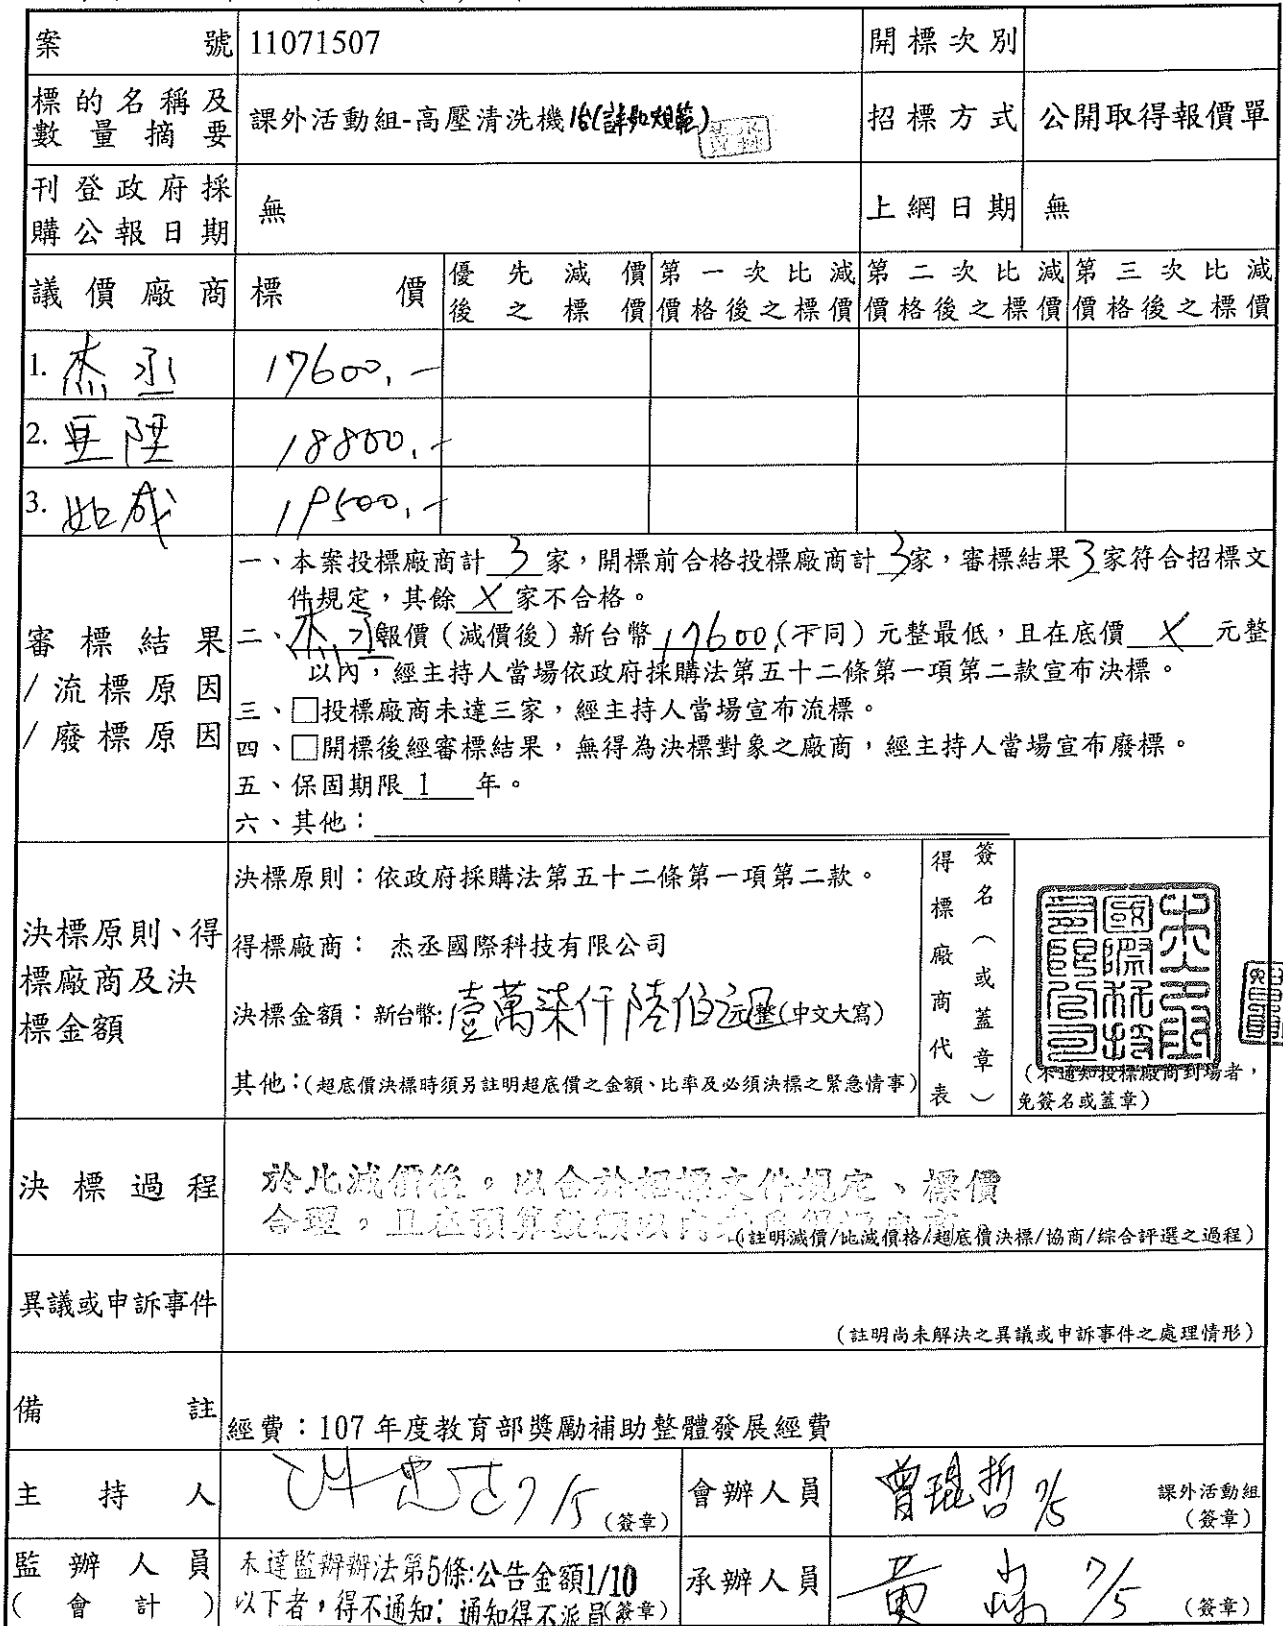 案號 11071507 開標次別
標的名稱及數量摘要 課外活動組-高壓清洗機1台(詳如規範) 招標方式 公開取得報價單
刊登政府採購公報日期 無 上網日期 無
議價廠商 標價 優先減價後之標價 第一次比減價格後之標價 第二次比減價格後之標價 第三次比減價格後之標價
1. 杰丞 17600.-
2. 亞陞 18800.-
3. 如成 19500.-
審標結果/流標原因/廢標原因
一、本案投標廠商計 3 家,開標前合格投標廠商計 3家,審標結果3家符合招標文
件規定,其餘 X 家不合格。
二、杰丞報價(減價後)新台幣17600.(下同)元整最低,且在底價 X 元整
以內,經主持人當場依政府採購法第五十二條第一項第二款宣布決標。
三、□投標廠商未達三家,經主持人當場宣布流標。
四、□開標後經審標結果,無得為決標對象之廠商,經主持人當場宣布廢標。
五、保固期限 1 年。
六、其他:
決標原則、得標廠商及決標金額
決標原則:依政府採購法第五十二條第一項第二款。
得標廠商: 杰丞國際科技有限公司
決標金額:新台幣:壹萬柒仟陸佰元整(中文大寫)
其他:(超底價決標時須另註明超底價之金額、比率及必須決標之緊急情事)
得標廠商代表
簽名(或蓋章)
杰丞國際科技有限公司
(不通知投標廠商到場者,
免簽名或蓋章)
決標過程
於比減價後。以合於招標文件規定、標價
合理。且在預算數額以內
(註明減價/比減價格/超底價決標/協商/綜合評選之過程)
異議或申訴事件
(註明尚未解決之異議或申訴事件之處理情形)
備註 經費:107 年度教育部獎勵補助整體發展經費
主持人 7/5 (簽章) 會辦人員 曾琨哲 7/5 課外活動組
(簽章)
監辦人員(會計) 未達監辦辦法第5條:公告金額1/10
以下者,得不通知;通知得不派員(簽章)
承辦人員 黃 7/5 (簽章)